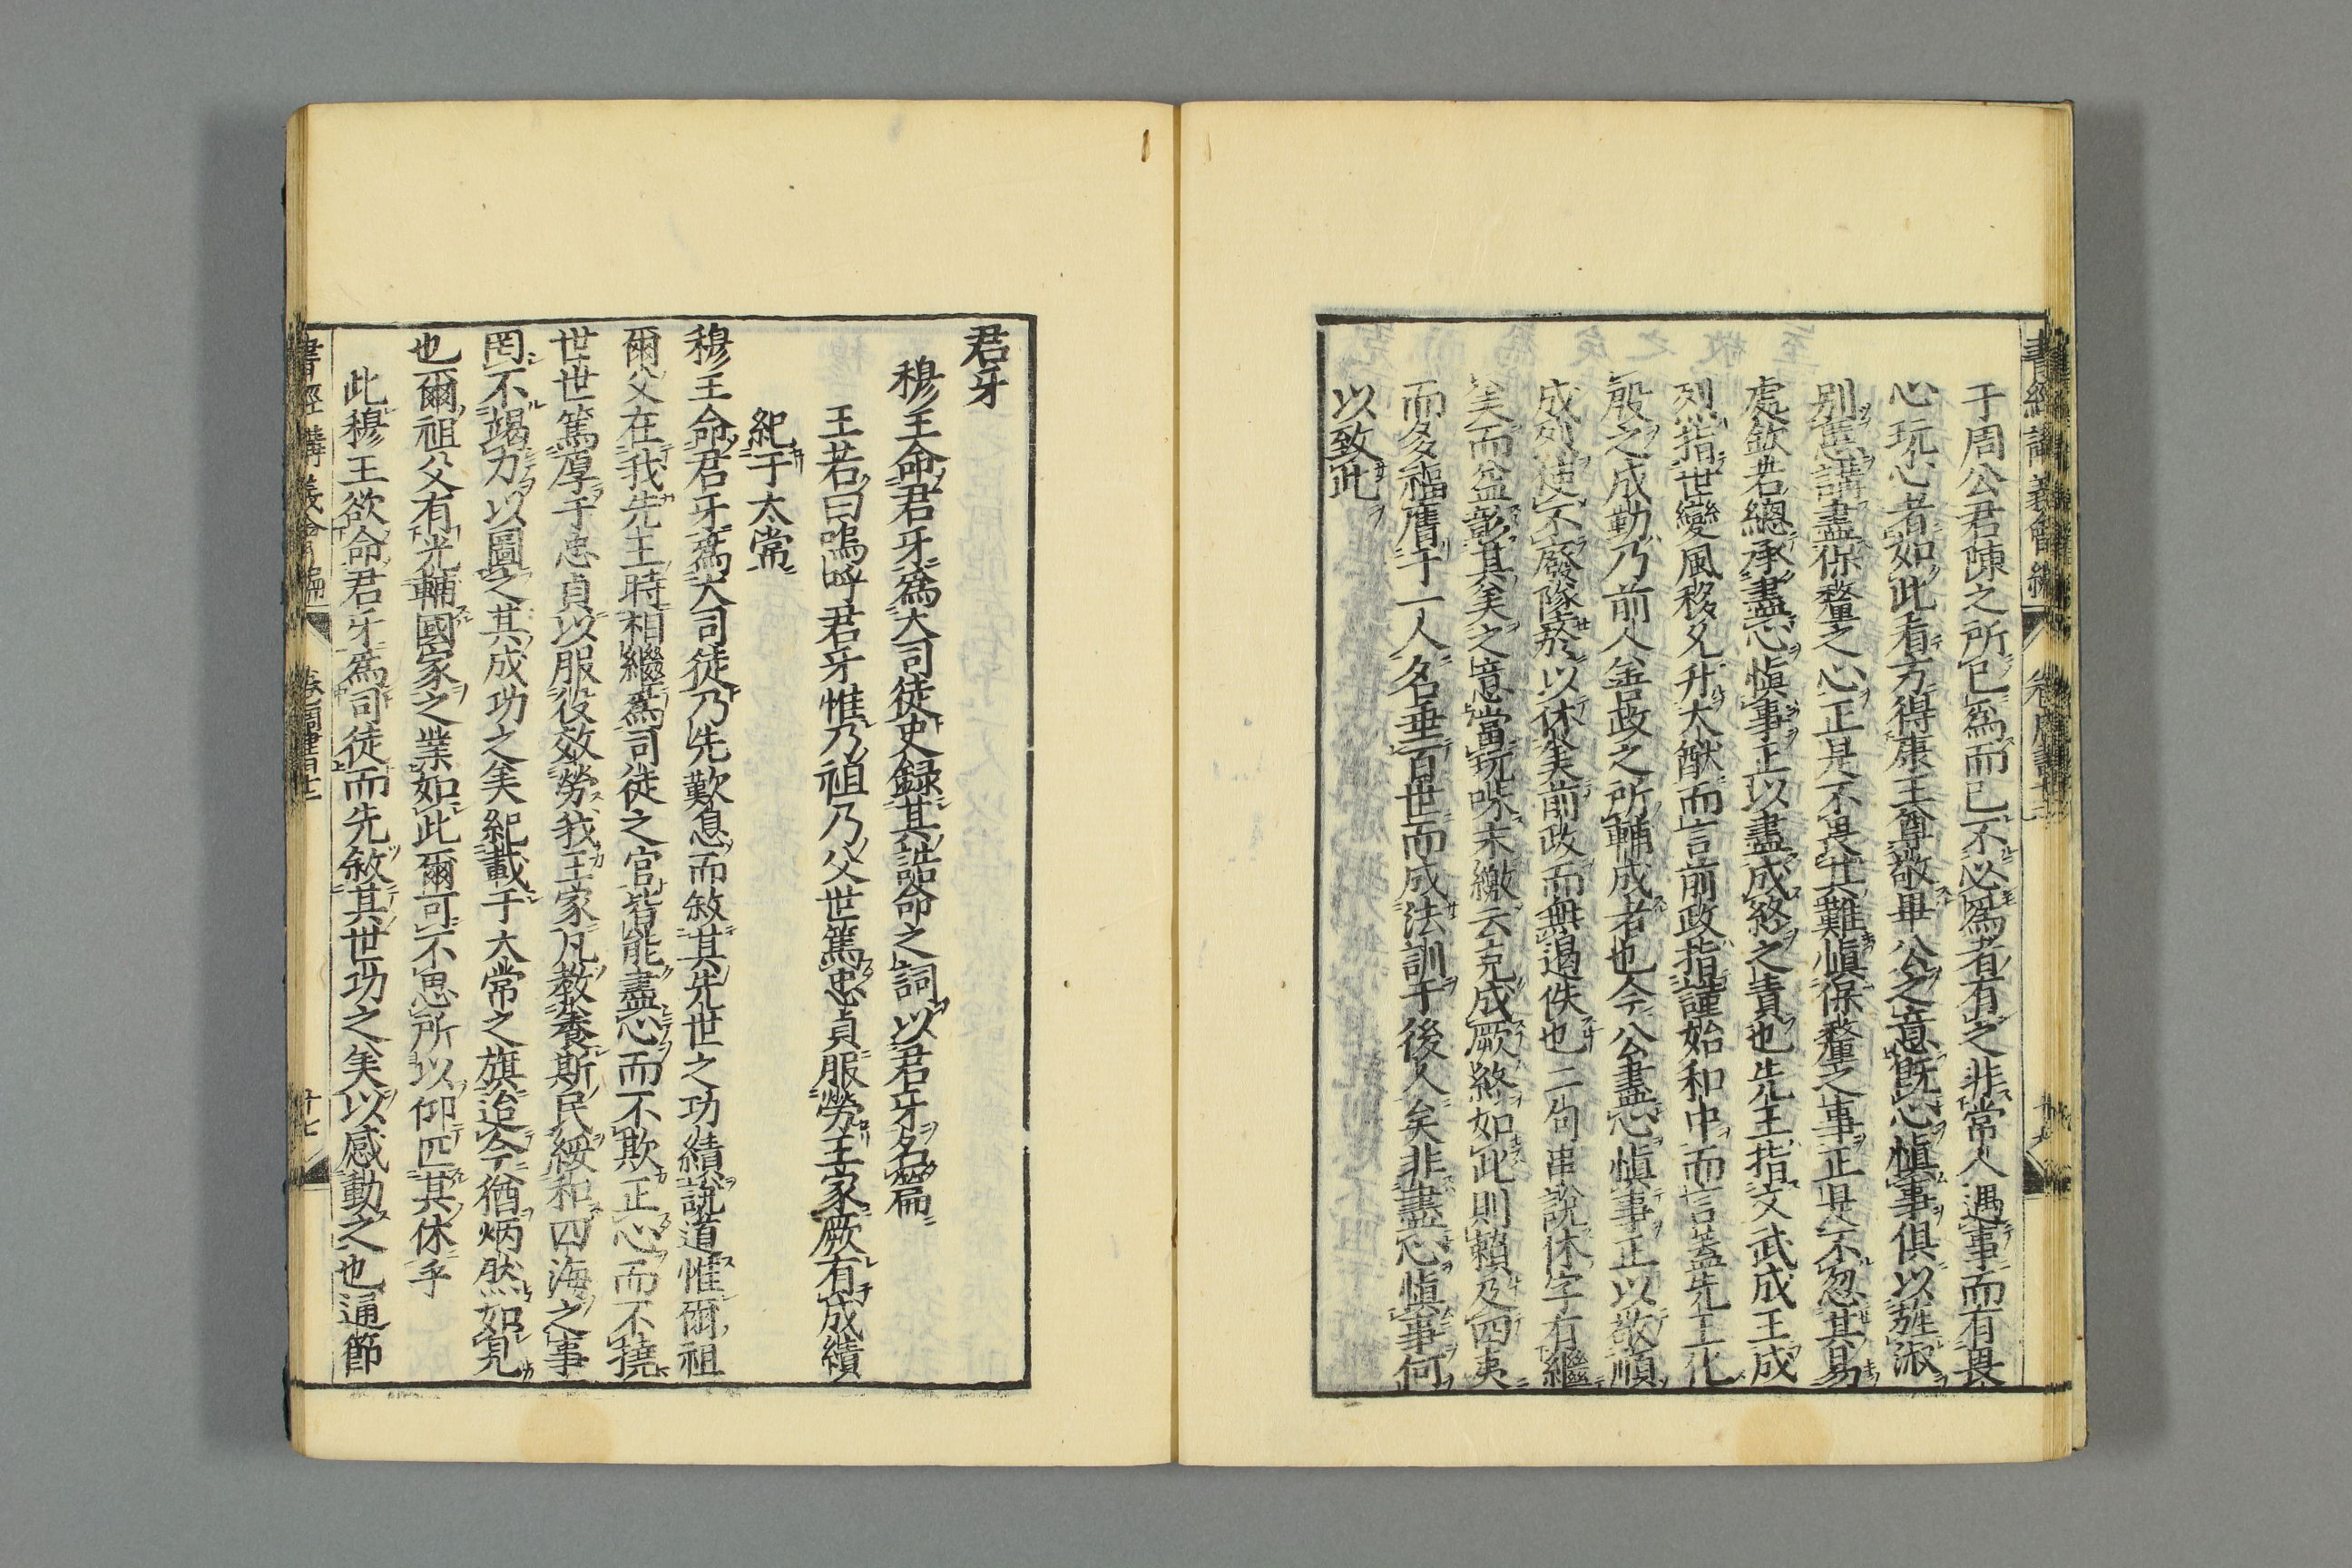 于周公君陳之所已爲而已不必爲者有之非常人遇事而有畏
心玩心者如此看方得康王尊敬畢公之意既心愼事俱以旌淑
別慝講盡保釐之心正是不畏其難愼保釐之事正是不忽其易
處欽若總承盡心愼事正以盡成終之責也先王指文武成王成
烈指世變風移允升大猷而言前政指謹始和中而言蓋先王化
殷之成勳乃前人善政之所輔成者也今公盡心愼事正以敬順
成烈使不廢隊於以休美前政而無遏佚也二句串說休字有繼
美而益彰其美之意當玩味末繳云克成厥終如此則賴及四夷
而多福膺于一人名垂百世而成法訓于後人矣非盡心愼事何
以致此
君牙
穆王命君牙爲大司徒史録其誥命之詞以君牙名篇
王若曰嗚呼君牙惟乃祖乃父世篤忠貞服勞王家厥有成績
紀于太常
穆王命君牙爲大司徒乃先歎息而敘其先世之功績說道惟爾祖
爾父在我先王時相繼爲司徒之官皆能盡心而不欺正心而不撓
世世篤厚于忠貞以服役效勞我王家凡教養斯民綏和四海之事
罔不竭力以圖之其成功之美紀載于太常之旗迨今猶炳然如見
也爾祖父有光輔國家之業如此爾可不思所以仰匹其休乎
此穆王欲命君牙爲司徒而先敘其世功之美以感動之也通節